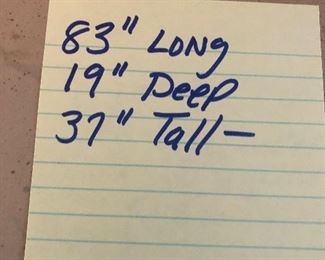 83" Long
19" Deep
37" Tall—